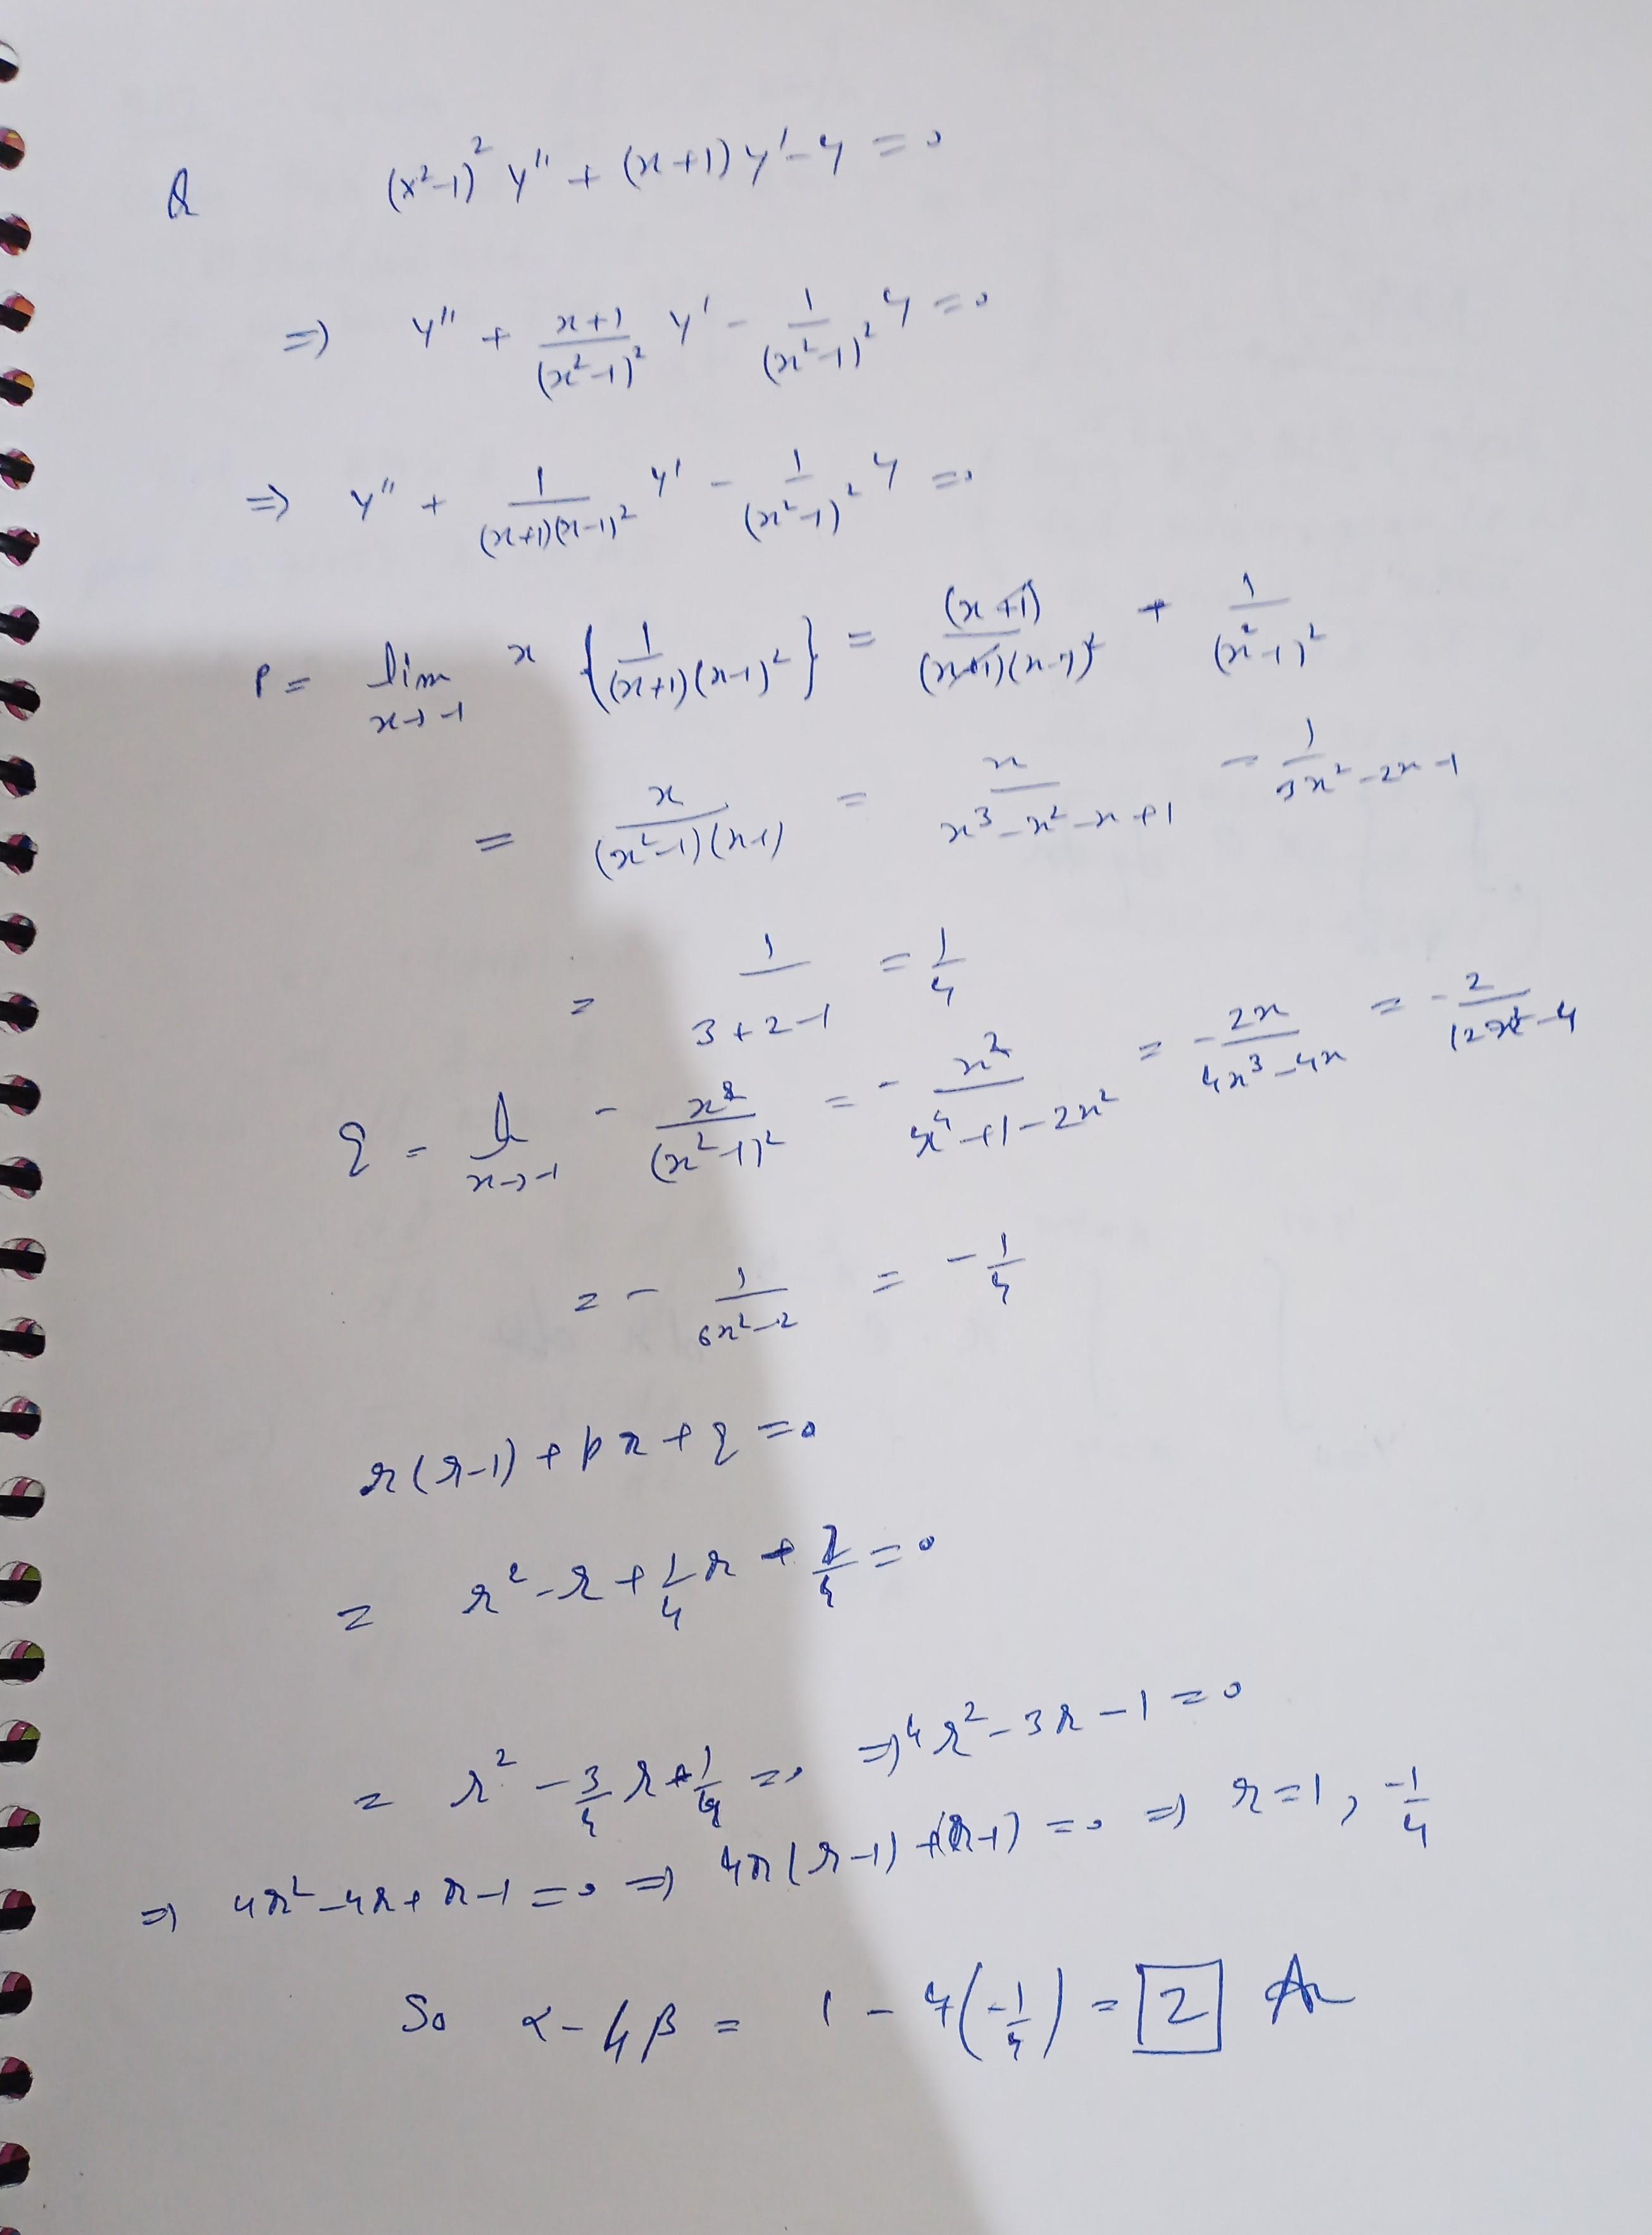 Q (x²-1)² y'' + (x+1) y' - y = 0
=) y'' + (x+1)/(x²-1)² y' - 1/(x²-1)² y = 0
=) y'' + 1/((x+1)(x-1)²) y' - 1/(x²-1)² y = 0
P = lim x→-1 x {1/((x+1)(x-1)²)} = (x+1)/((x+1)(x-1)²) + 1/(x²-1)²
= x/((x²-1)(x-1)) = x/(x³-x²-x+1) = 1/(3x²-2x-1)
= 1/(3+2-1) = 1/4
q = l x→-1 - x²/(x²-1)² = - x²/(x⁴+1-2x²) = - 2x/(4x³-4x) = - 2/(12x²-4)
= - 1/(6x²-2) = - 1/4
r(r-1) + pr + q = 0
= r² - r + 1/4 r + 1/4 = 0
= r² - 3/4 r + 1/4 = 0 =) 4r² - 3r - 1 = 0
=) 4r² - 4r + r - 1 = 0 =) 4r(r-1) + (r-1) = 0 =) r = 1, -1/4
So α - 4β = 1 - 4(-1/4) = 2 A